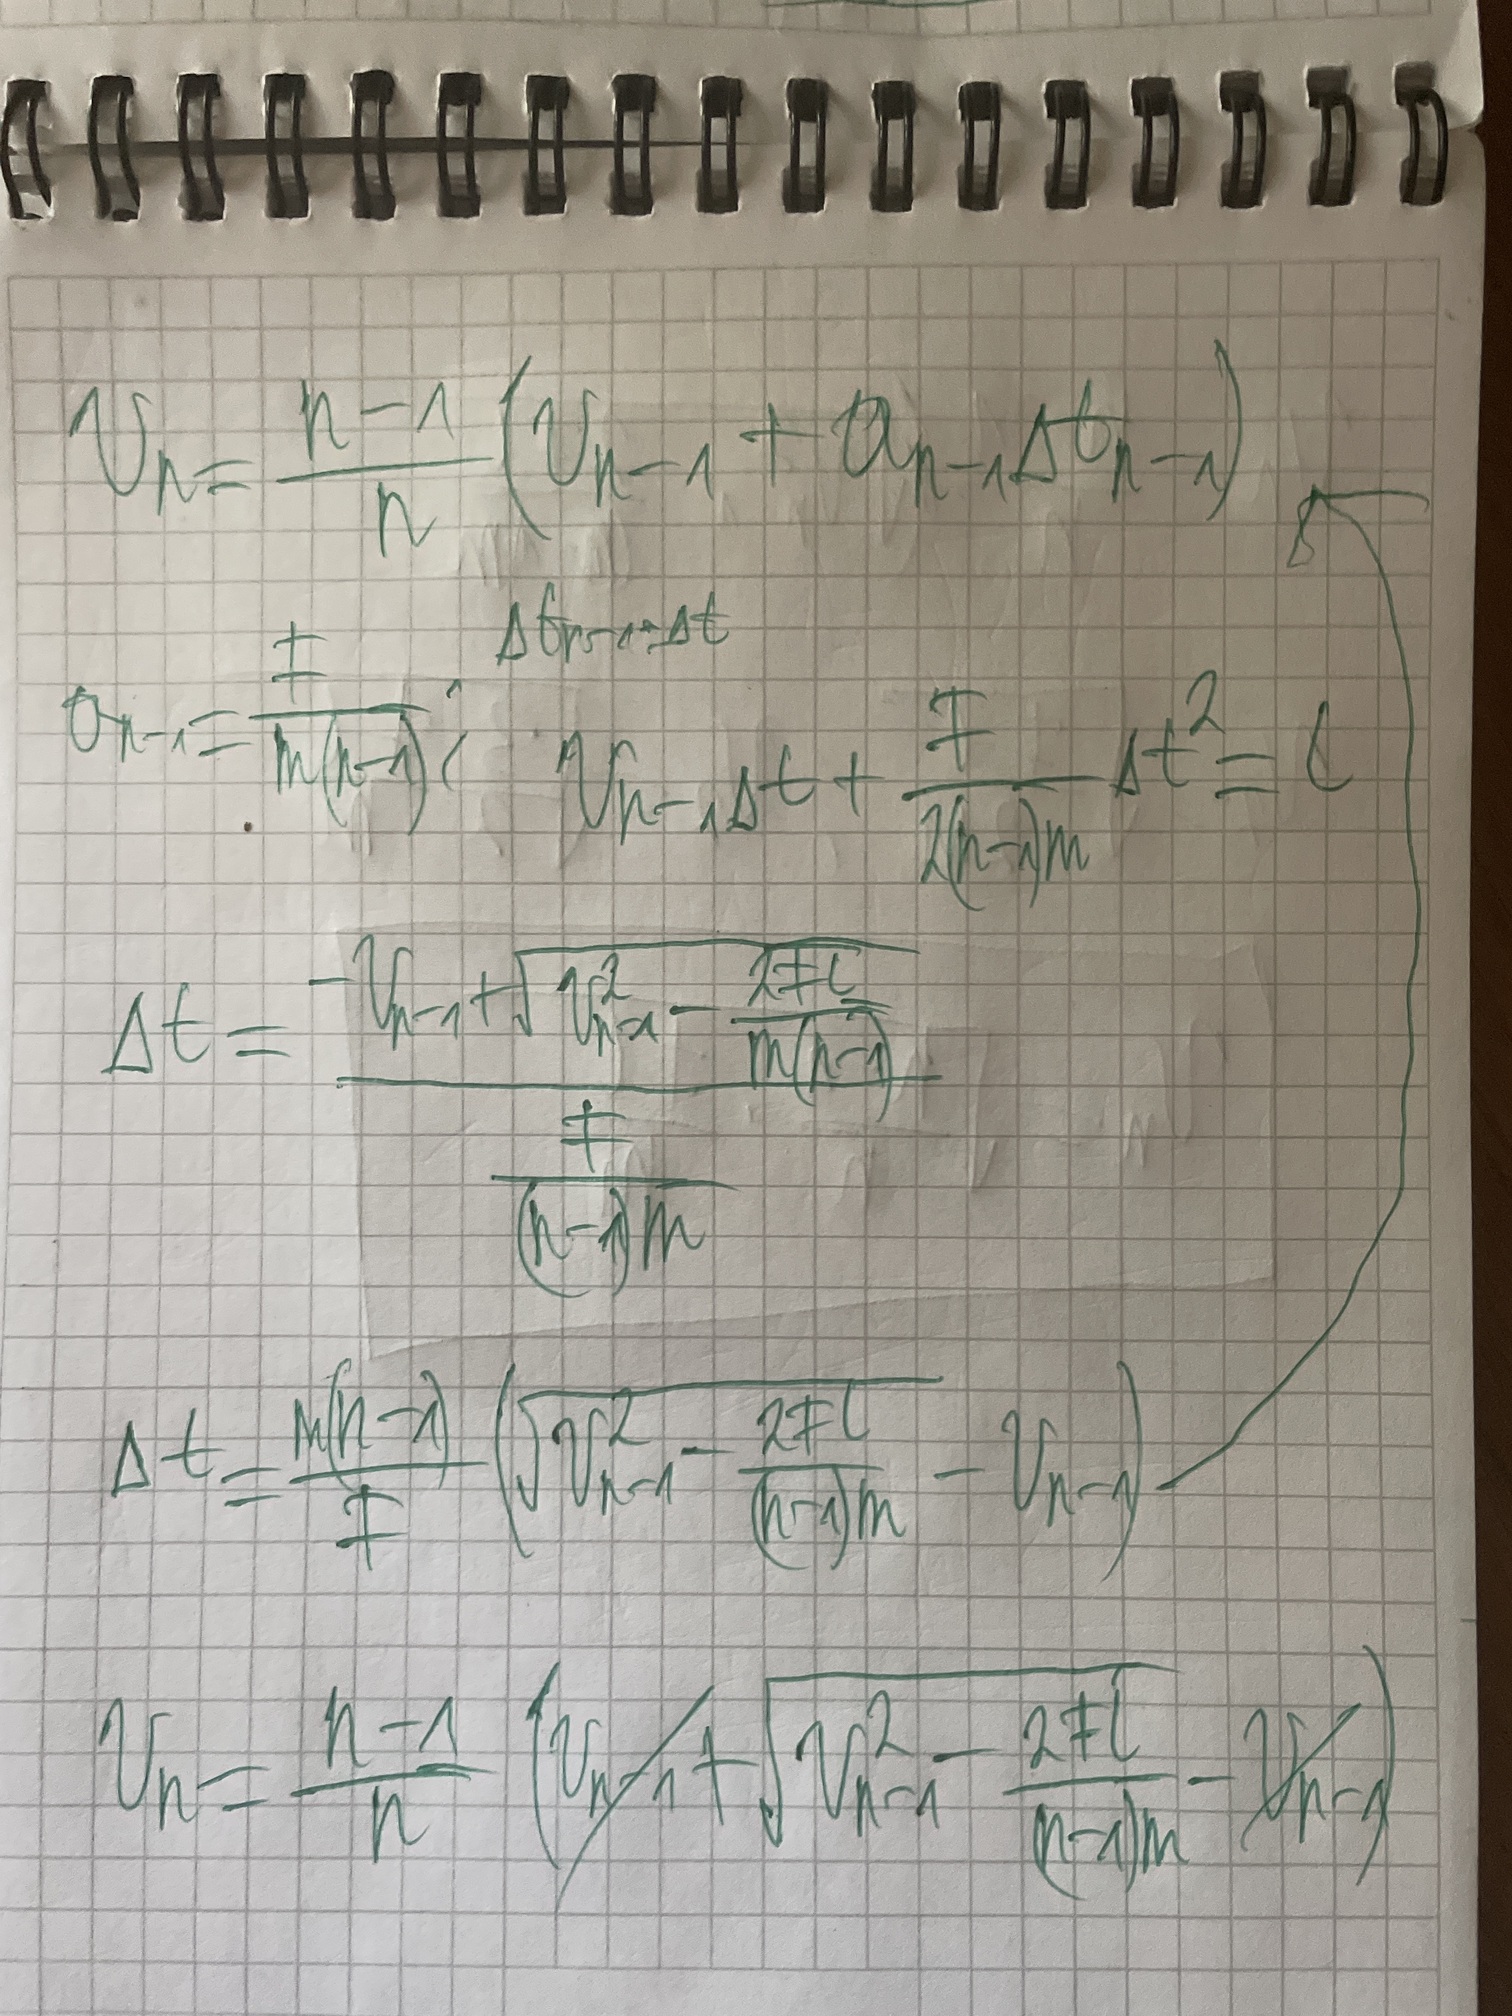 Vn = n-1/n (Vn-1 + an-1 Δtn-1)
Δtn-1 = Δt
an-1 = F/m(n-1) ; Vn-1 Δt + F/2(n-1)m Δt² = l
Δt = (-Vn-1 + √(V²n-1 - 2Fl/m(n-1))) / (F/(n-1)m)
Δt = m(n-1)/F (√(V²n-1 - 2Fl/(n-1)m) - Vn-1)
Vn = n-1/n (Vn-1 + √(V²n-1 - 2Fl/(n-1)m) - Vn-1)